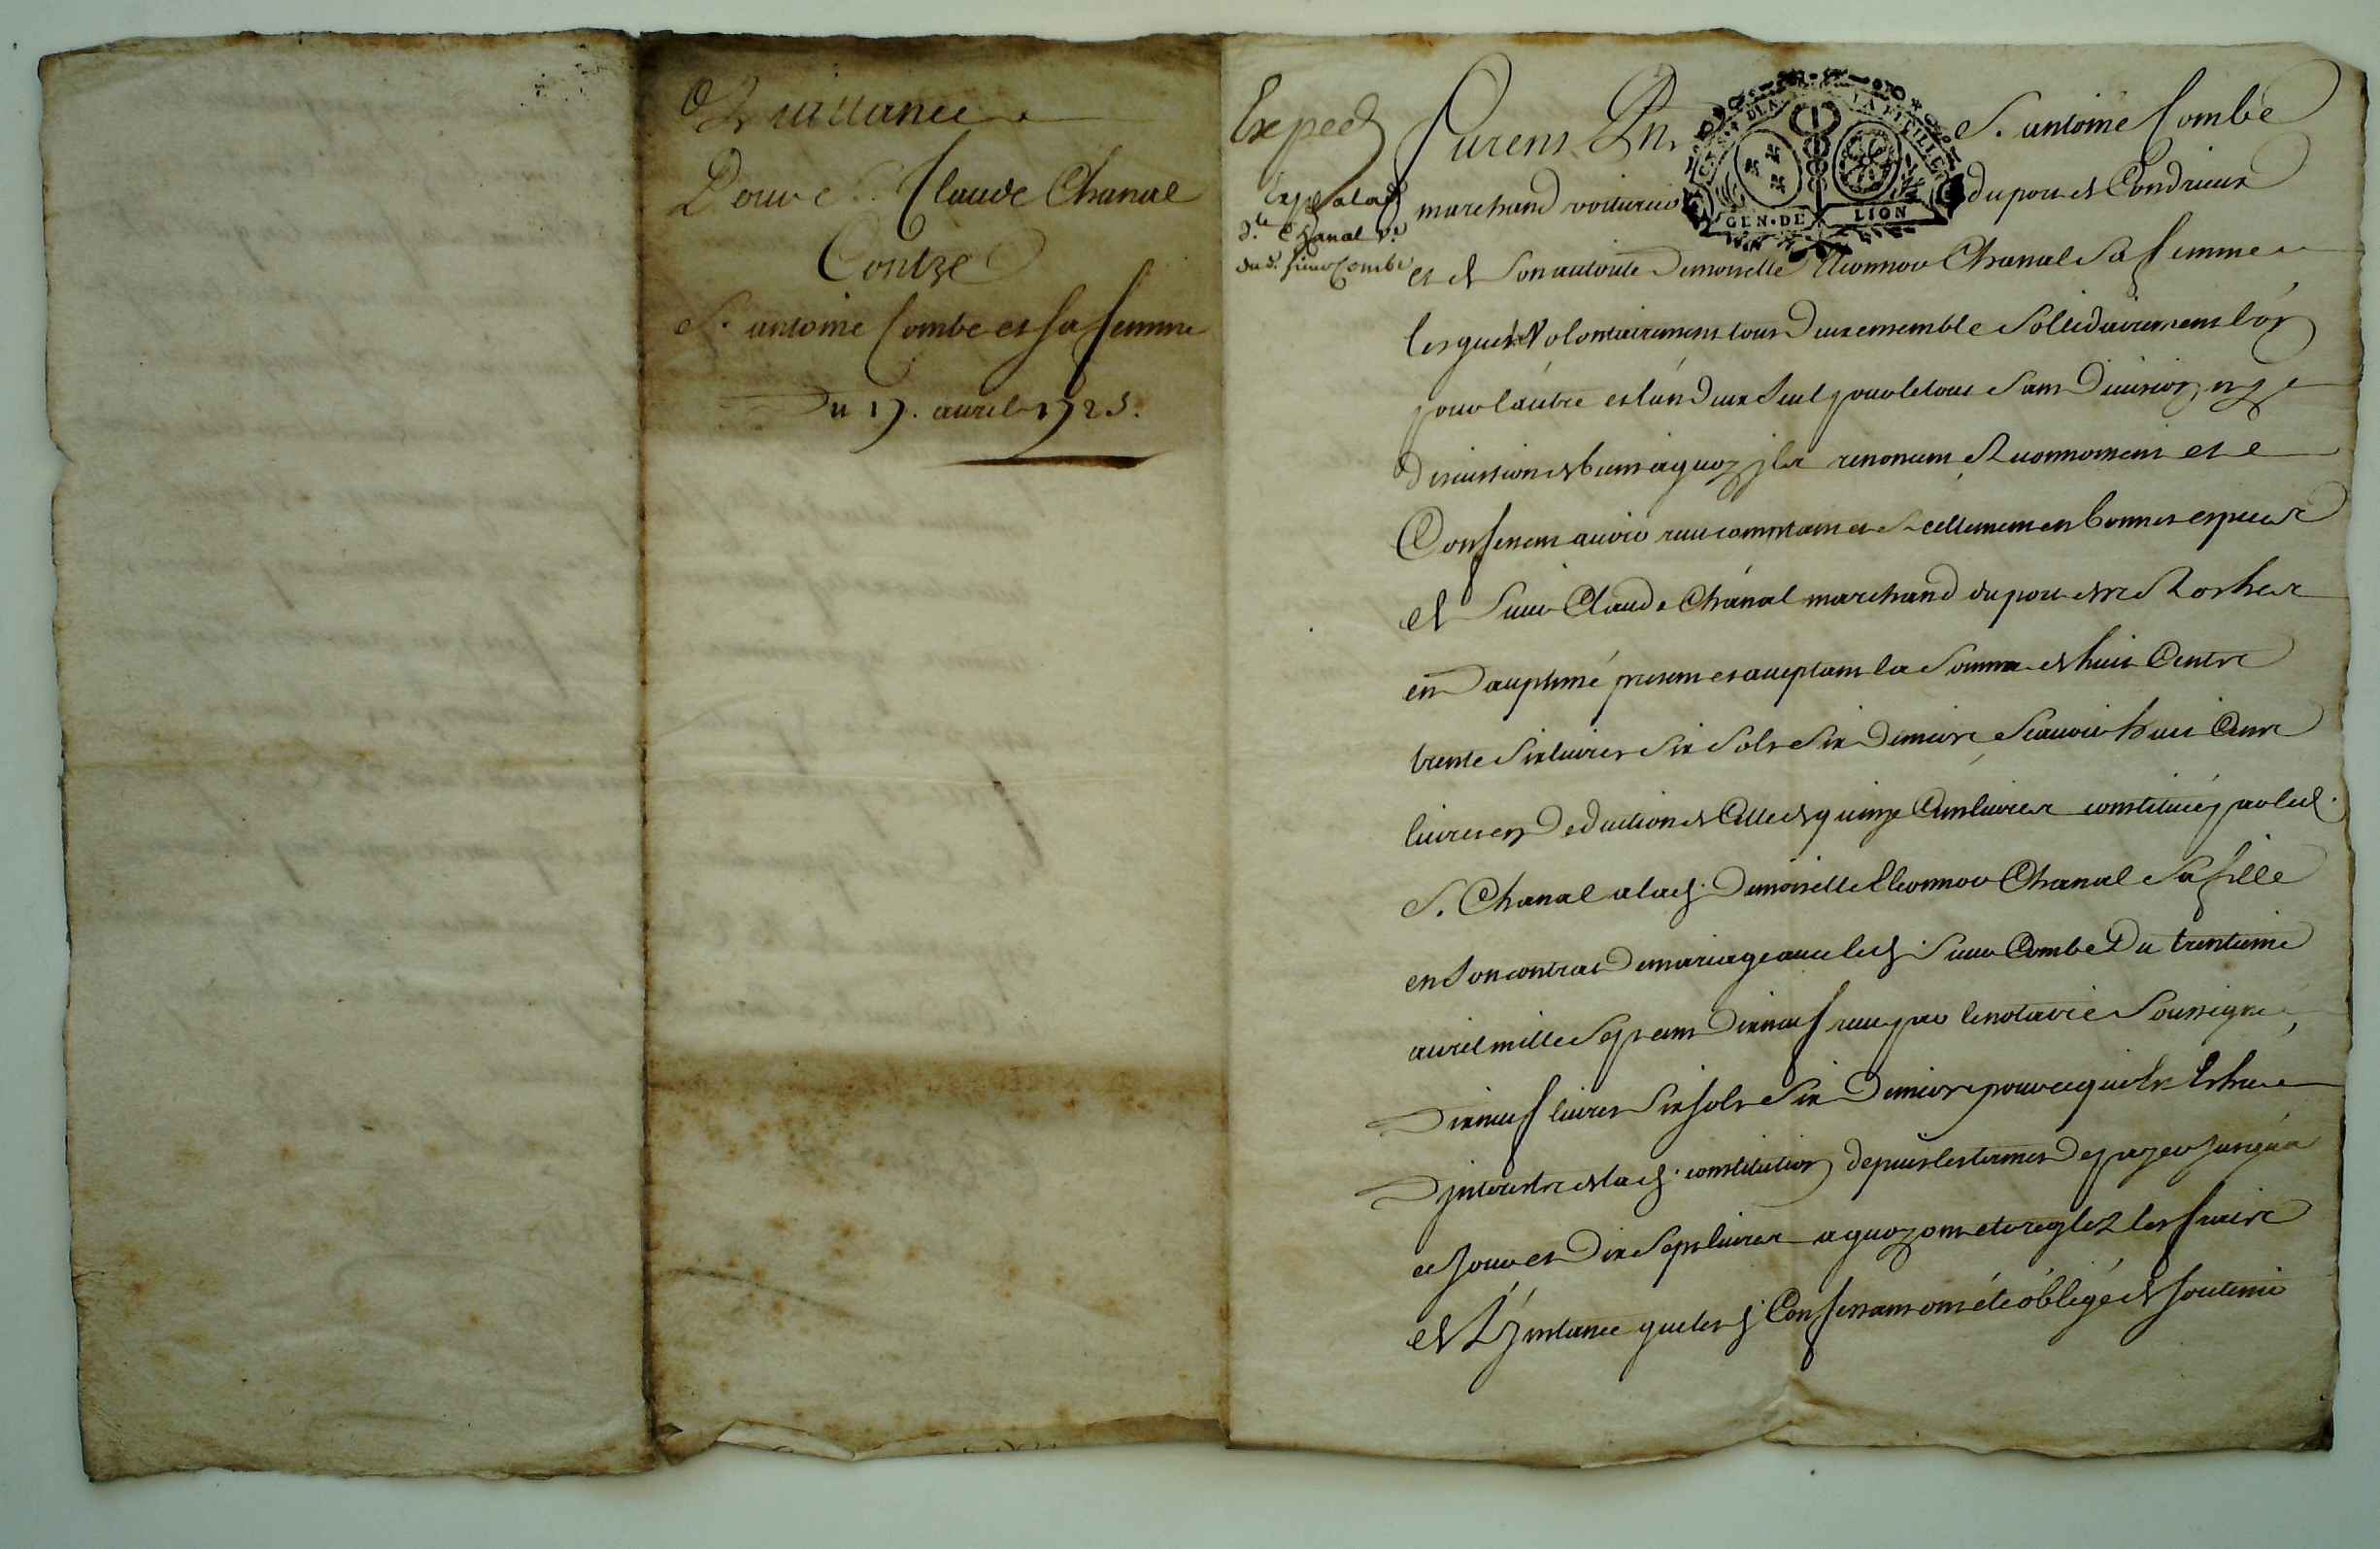 Quittance
Pour S. Claude Chanal
Contre
S. antoine Combe et sa femme
Du 17. auril 1725.
Exped
Exp. a lad
d.lle Chanal v.e
dud. sieur Combe
furent Pn. S. antoine Combe
marchand voiturier du port de Condrieux
GEN. DE LION
et de son autorité Demoiselle Eleonnor Chanal Sa femme
lesquels Volontairement tous Deux ensemble Sollidairement l'un
pour l'autre et l'un Deux seul pour le tout Sans Diuision ny
Discussion de biens a quoy ils renoncent Reconnoissent et
Confessent auoir receu comptant et Reellement en bonnes especes
de Sieur Claude Chanal marchand du port des Roches
en Dauphiné present et acceptant la Somme de huit Cents
trente Six liures Six Sols Six Deniers Scauoir huit Cents
liures en Deduction de Celle de quinze Cents liures constituée par led.
S. Chanal a lad. Demoiselle Eleonnor Chanal Sa fille
en Son contrat De mariage auec led. Sieur Combe Du trentieme
auril mille Sept cents Dix neuf receu par le notaire Soussigné
Dix neuf liures Six sols Six Deniers pour ce qui est Escheu
D'interests de lad. constitution depuis les termes De payer Jusqu'a
ce Jour et Dix Sept liures a quoy ont eté reglez les fraix
de L'instance que les d. Confessants ont été obligé de soutenir